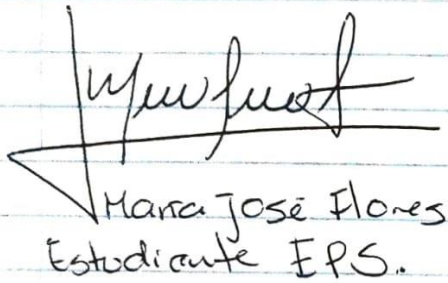 María José Flores
Estudiante EPS.